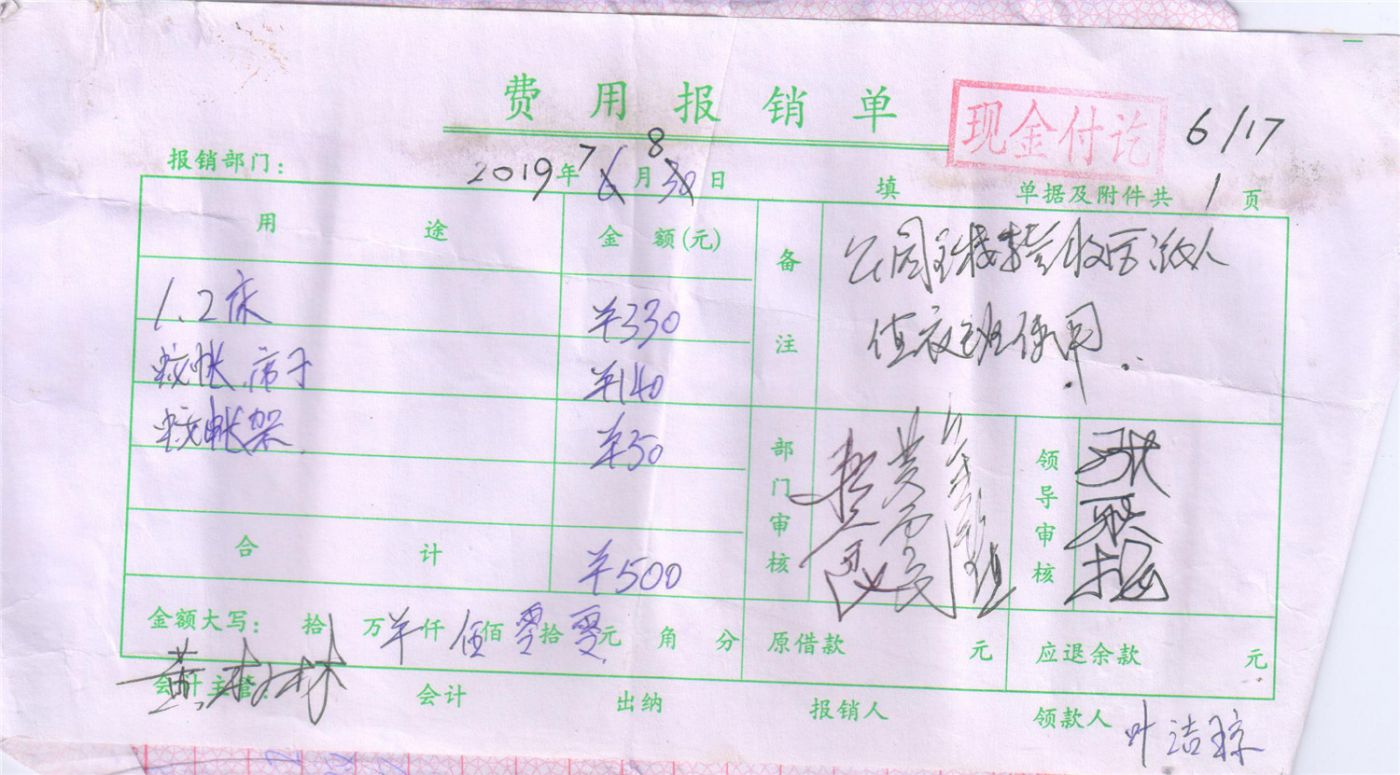 费用报销单
现金付讫
6/17
报销部门：
2019年7月8日
填
单据及附件共1页
用途
金额(元)
备注
1.2床
¥330
蚊帐.席子
¥140
蚊帐架
¥30
值夜班使用.
部门审核
领导审核
合计
¥500
金额大写： 拾 万¥仟伍佰零拾零元 角 分
原借款 元
应退余款 元
会计主管
黄树林
会计
出纳
报销人
领款人
叶洁琼